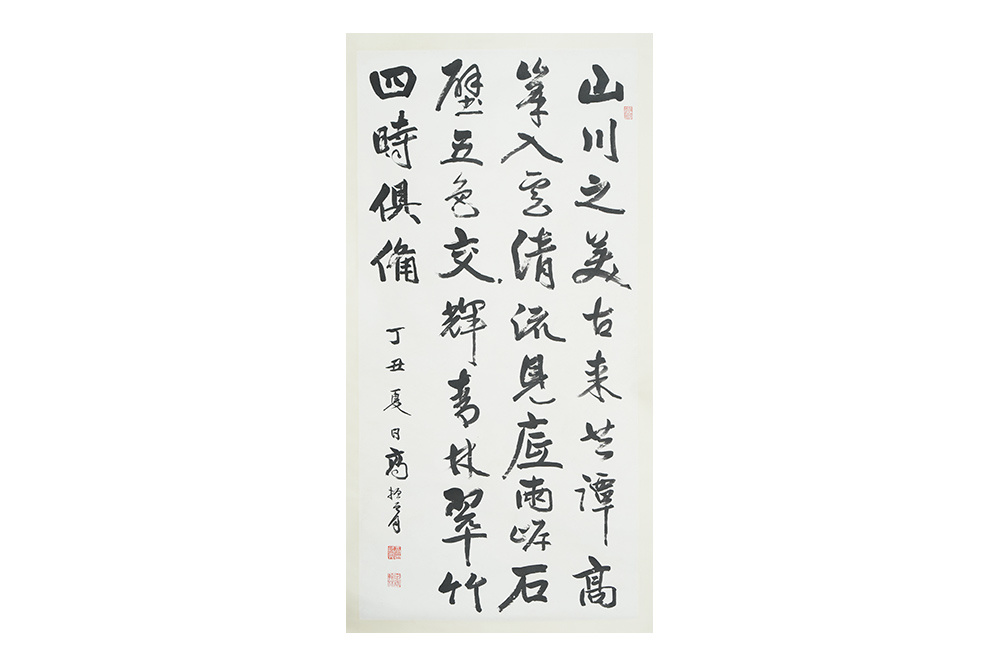 山川之美古来共譚高
峯入雲清流見底兩岸石
壁五色交輝青林翠竹
四時俱備
丁丑夏日高振霄